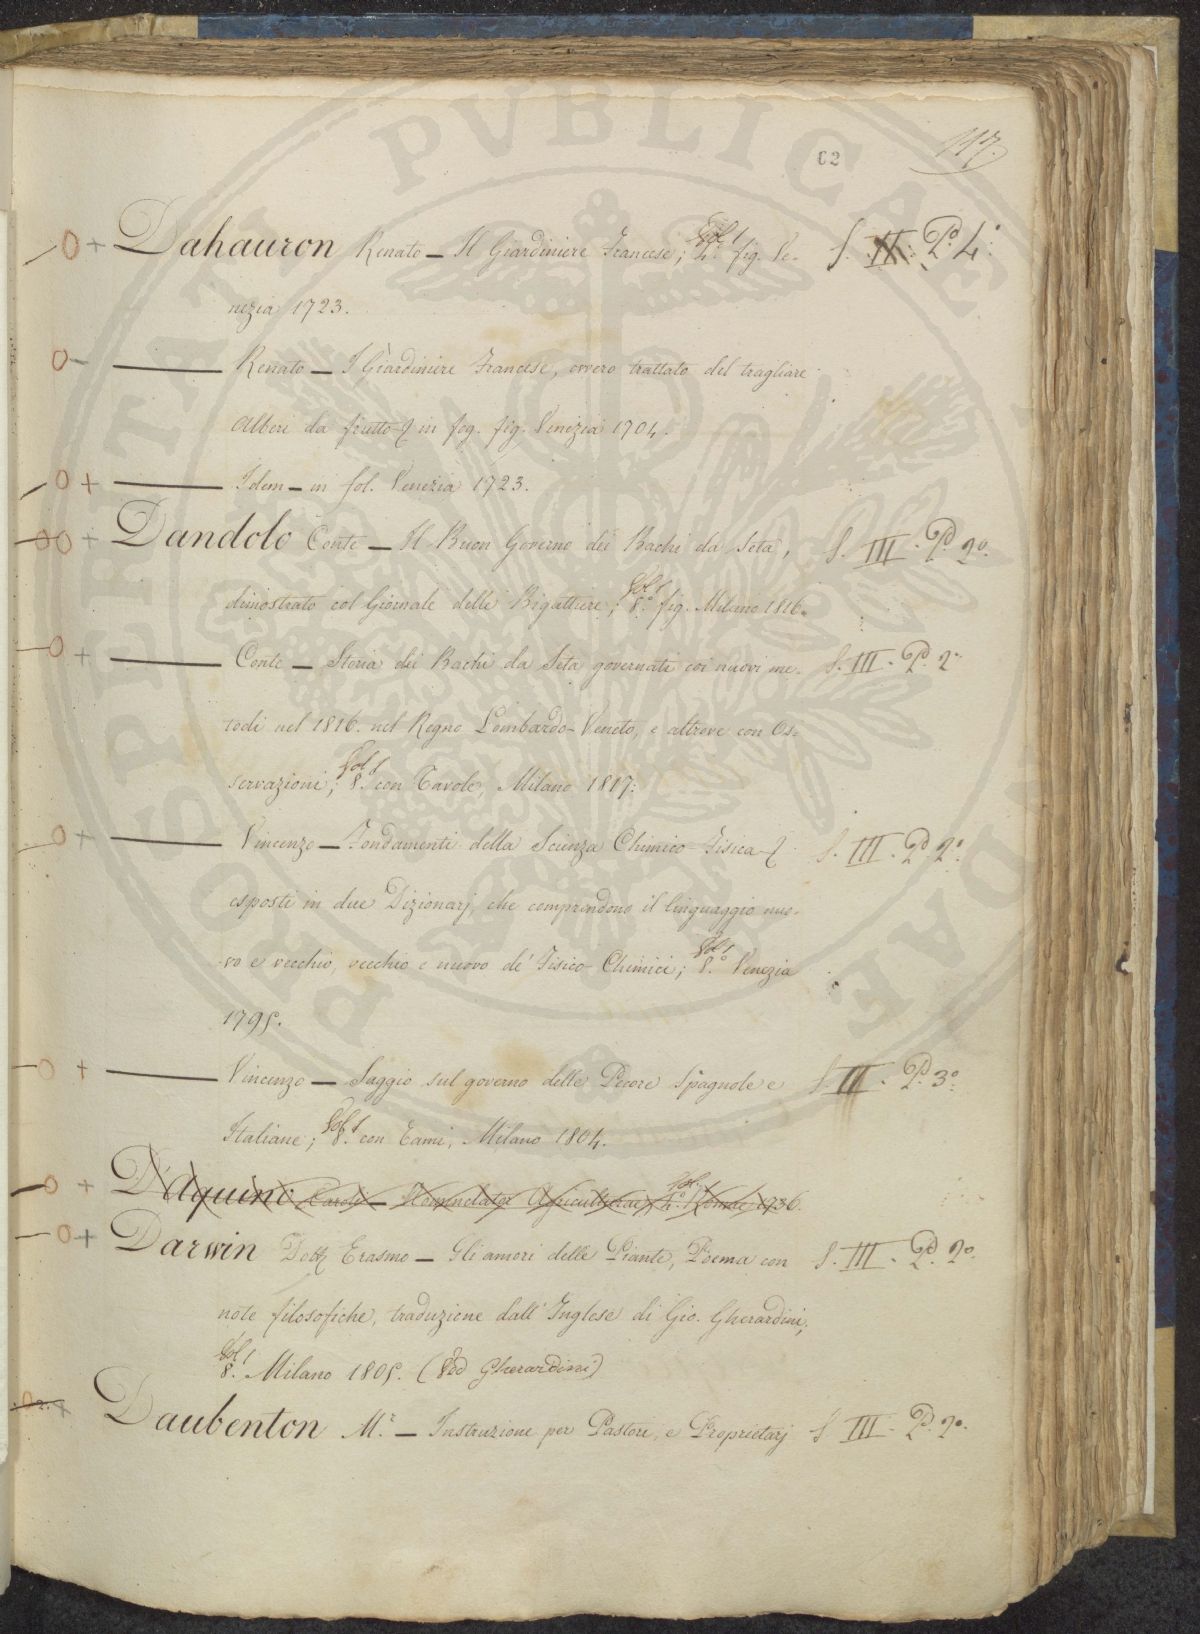 117.
62
Dahauron Renato — Il Giardiniere Francese; Vol 1 4.° fig. Ve- S. II. P.° 4.°
nezia 1723.
Renato — Il Giardiniere Francese, ovvero trattato del tragliare
Alberi da frutto & in fog. fig. Venezia 1704.
Idem — in fol. Venezia 1723.
Dandolo Conte — Il Buon Governo dei Bachi da Seta, S. III. P.° 2.°
dimostrato col Giornale delle Bigattiere; Vol 1 8.° fig. Milano 1816.
Conte — Storia dei Bachi da Seta governati coi nuovi me- S. III. P.° 2.°
todi nel 1816. nel Regno Lombardo-Veneto, e altrove con Os-
servazioni; Vol 1 8.° con Tavole, Milano 1817.
Vincenzo — Fondamenti della Scienza Chimico-Fisica & S. III. P.° 2.°
esposti in due Dizionarj, che comprendono il linguaggio nuo-
vo e vecchio, vecchio e nuovo de' Fisico-Chimici; Vol 1 8.° Venezia
1795.
Vincenzo — Saggio sul governo delle Pecore Spagnole e S. III. P.° 3.°
Italiane; Vol 1 8.° con Rami, Milano 1804.
D'Aquino Caroli — Nomenclator Agriculturae, Vol. 4.° Romae 1736.
Darwin Dott Erasmo — Gli amori delle Piante, Poema con S. III. P.° 2.°
note filosofiche, traduzione dall'Inglese di Gio. Gherardini,
Vol 1 8.° Milano 1805. (Ved Gherardini)
Daubenton M.r — Instruzione per Pastori, e Proprietarj S. III. P.° 2.°
PROSPERITATI PVBLICAE AVGENDAE